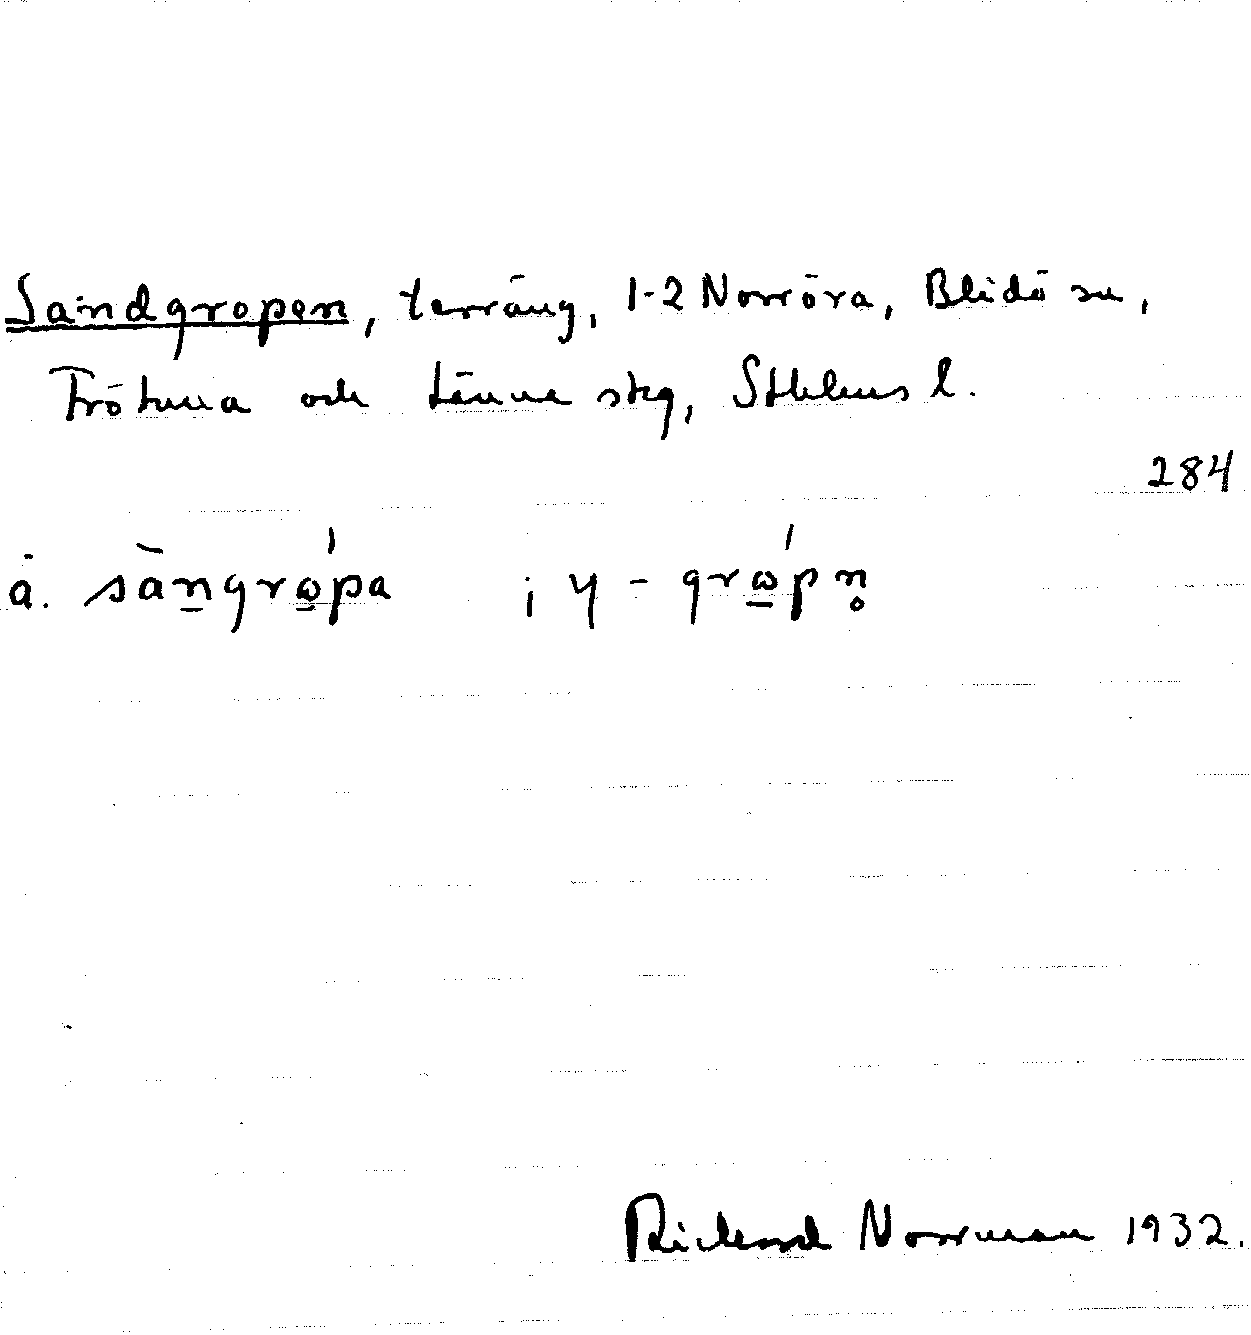 Sandgropen, terräng, 1-2 Norröra, Blidö sn,
Frötuna och Länna skg, Sthlms l.
284
å. sàngrώ̲pa ; y - grώ̲pn̥
Rickard Norrman 1932.